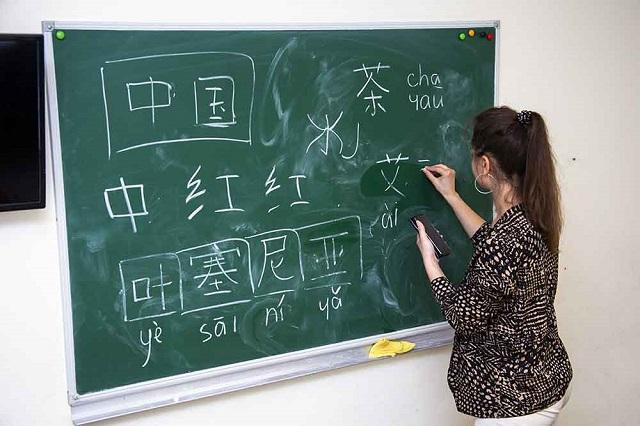 中国
茶 cha
чай
中 红 红
艾
ài
叶塞尼亚
yè sāi ní yǎ